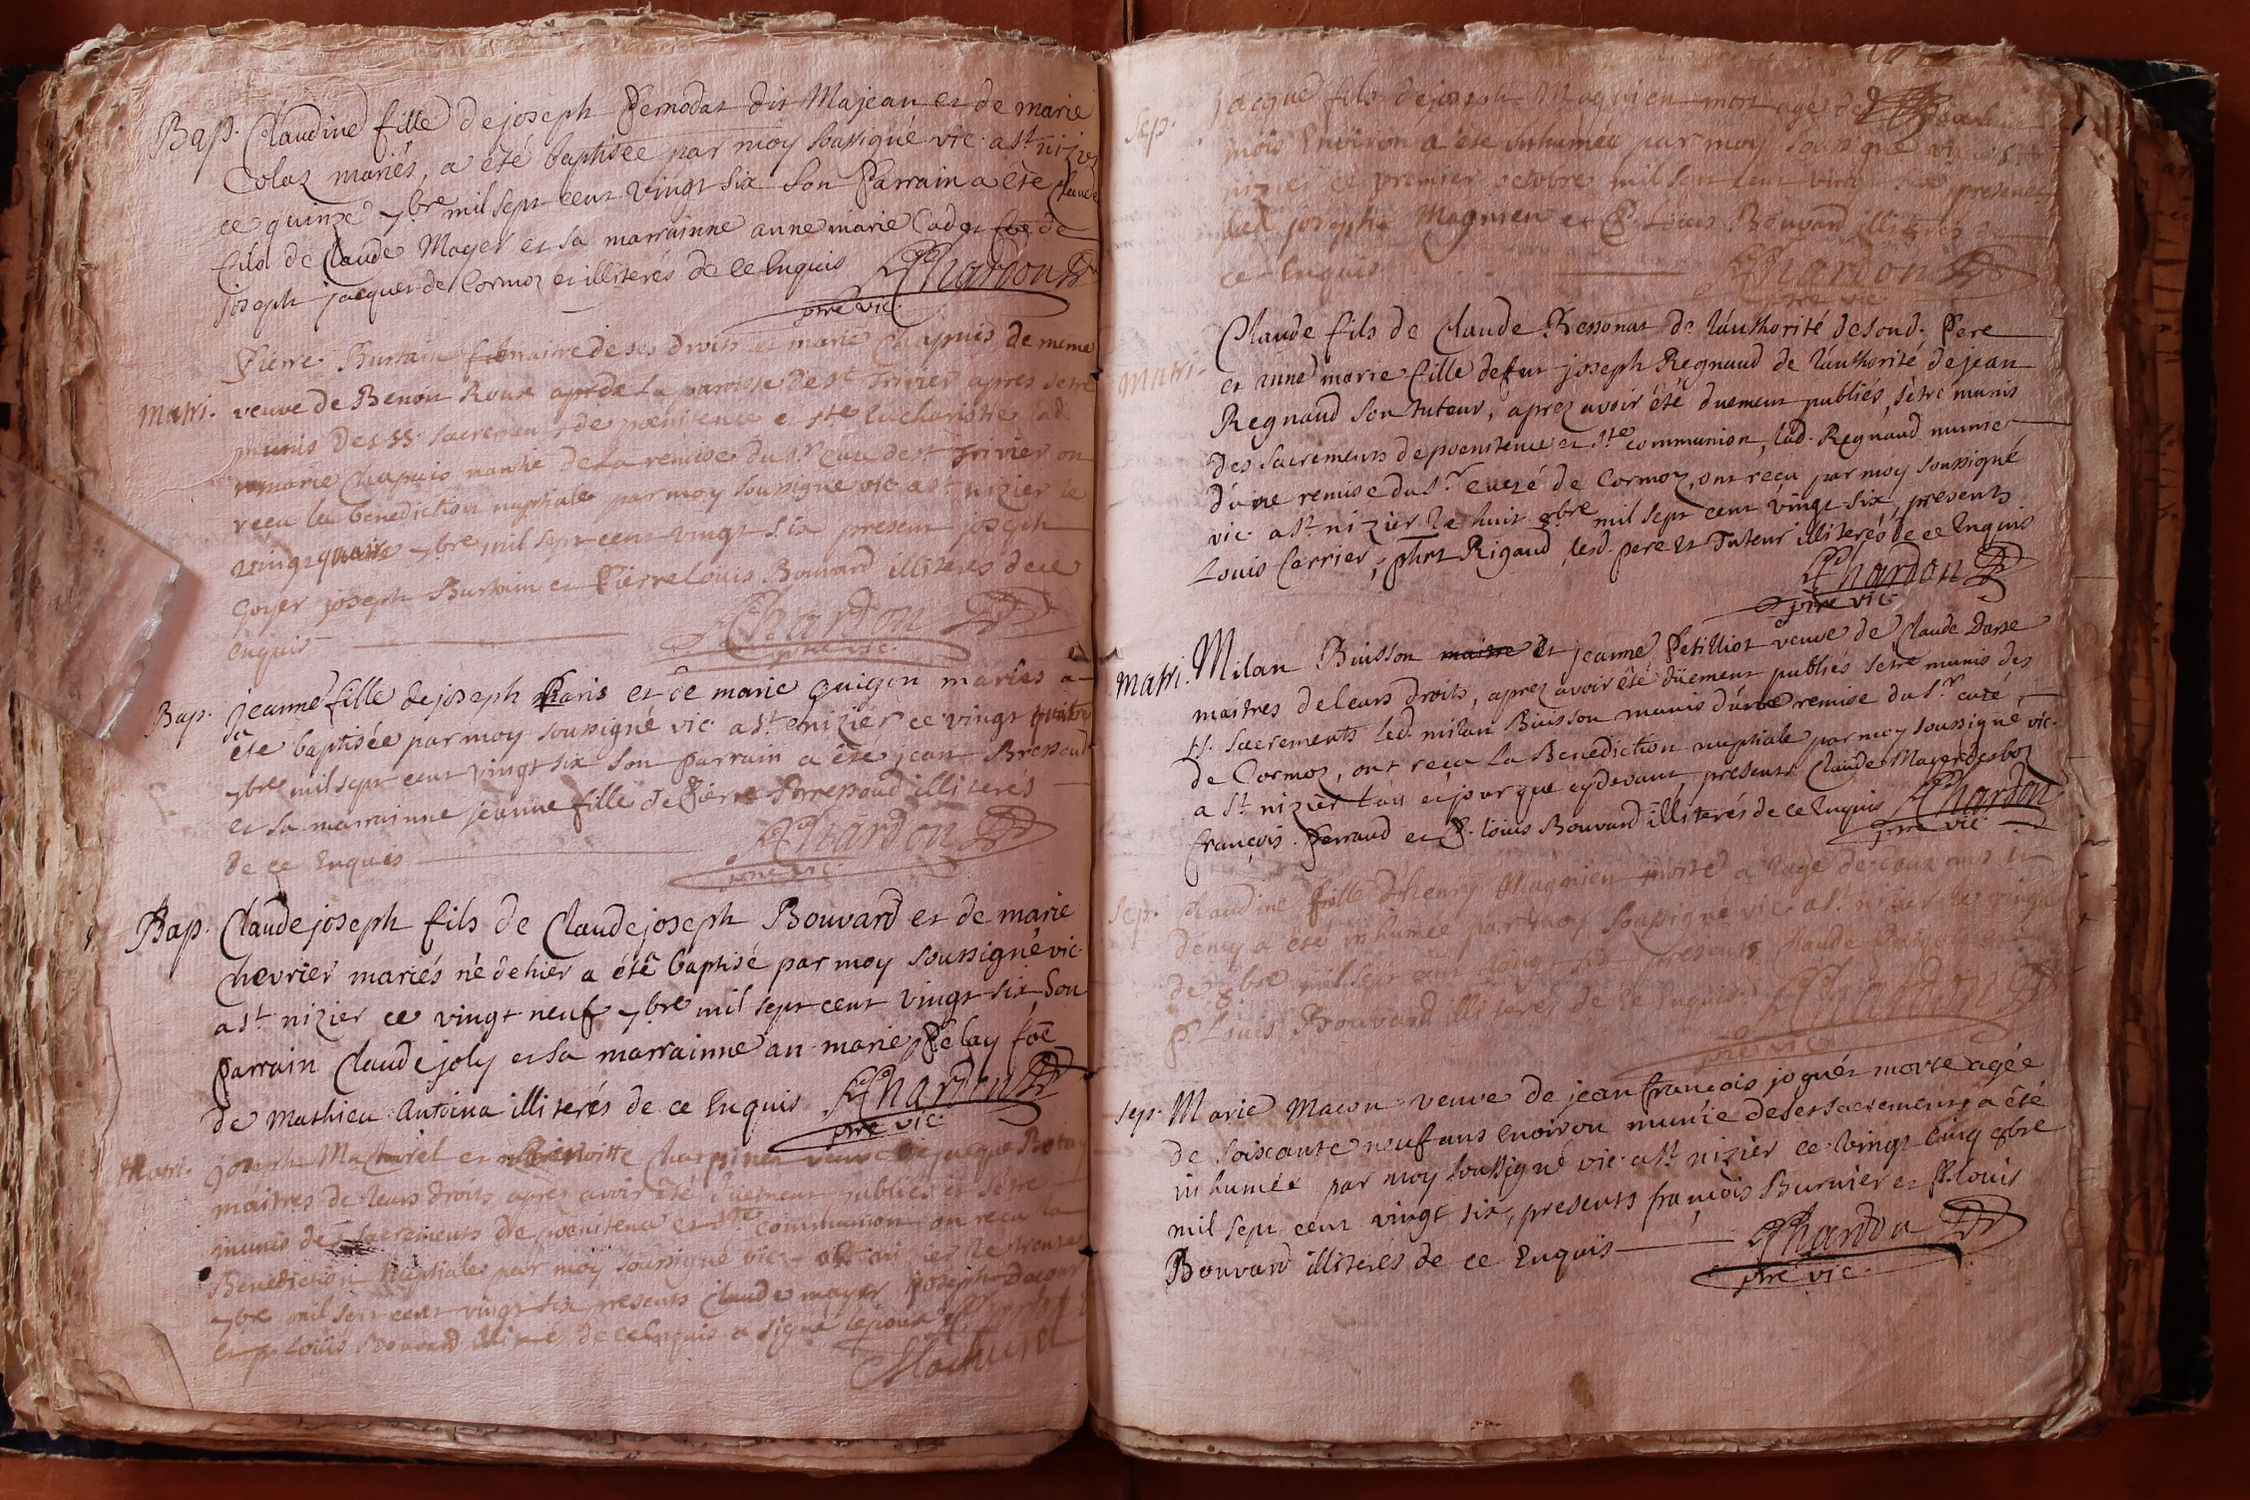 Bap. Claudine fille de joseph Pemodat dit Majean et de marie
Colaz mariés, a été baptisée par moy soussigné vic. a st nizier
ce quinze 7bre mil sept cent vingt six son Parrain a été Claude
fils de Claude Mayer et sa marrainne anne marie Cadot foe de
joseph jacquer de Cormoz et illiterés de ce Enquis Chardon
ptre vic.
Pierre Burtain maitre de ses droits et marie Chapuis de meme
Matri. veuve de Benoit Roux de la paroisse de st Trivier apres setre
munis des SS. sacremens de poenitence et ste Eucharistie lad.
marie Chapuis nantie de la remise du Sr Curé de st Trivier on
recu la benediction nuptiale par moy soussigné vic. a st nizier le
vingt quatre 7bre mil sept cent vingt six present joseph
Goyer joseph Burtain et Pierre Louis Bouvard illiteres de ce
enquis Chardon
ptre vic.
Bap. jeanne fille de joseph Paris et de marie Guigon mariés a
été baptisée par moy soussigné vic. a st nizier ce vingt quatre
7bre mil sept cent vingt six son parrain a été jean Bressoud
et sa marrainne jeanne fille de Pierre Borressoud illiterés
de ce Enquis Chardon
ptre vic
Bap. Claude joseph fils de Claude joseph Bouvard et de marie
Chevrier mariés né de hier a été baptisé par moy soussigné vic.
a st nizier ce vingt neuf 7bre mil sept cent vingt six Son
parrain Claude joly et sa marrainne an. marie Pelay foe
de Mathieu Antoina illiterés de ce Enquis Chardon
ptre vic.
Matri. joseph Macharel et Benoitte Charpinet veuve de jacque
maitres de leurs droits aprez avoir été duement publiés et setre
munis des sacrements de poenitence et ste communion on recu la
Benediction Nuptiales par moy soussigné vic. a st nizier le trente
7bre mil sept cent vingt six presents Claude mayer joseph
et p louis Bouvard illitere de ce Enquis a signé lepoux joseph
Macharel
Sep. jacque fils de joseph Magnien mort agé de
mois Environ a été inhumée par moy soussigné vic. a st
nizier ce premier octobre mil sept cent vingt six presents
led. joseph Magnien et P. Louis Bouvard illiteres
ce Enquis Chardon
ptre vic
Claude fils de Claude Bressonat de l'authorité de sond. Pere
Matri. et anne marie fille de fut joseph Regnaud de l'authorité de jean
Regnaud son tuteur, aprez avoir été duement publiés, setre munis
des sacrements de poenitence et ste communion, lad. Regnaud munie
d'une remise du Sr curé de Cormoz, ont reçu par moy soussigné
vic. a st nizier le huit 8bre mil sept cent vingt six, presents
Louis Carrier, phrt Rigaud, lesd. pere et Tuteur illiterés de ce Enquis
Chardon
ptre vic.
Matri. Milan Buisson et jeanne Petilliot veuve de Claude Darse
maitres de leurs droits, aprez avoir été düement publiés setre munis des
ss. sacrements led. milan Buisson munis d'une remise du Sr curé
de Cormoz, ont reçu la Benediction nuptiale par moy soussigné vic.
a st nizier l'an et jour que cy devant, presents Claude Mayer desboz
françois Perraud et P. louis Bouvard illiterés de ce Enquis Chardon
ptre vic.
Sep. Claudine fille d'henry Magnien morte a l'age de deux ans et
demy a été inhumée par moy soussigné vic. a st nizier le vingt
de 8bre mil sept cent vingt six presents Claude
P Louis Bouvard illiteres de ce Enquis Chardon
ptre vic
Sep. Marie Macon veuve de jean françois joguét morte agée
de soixante neuf ans Environ munie de ses sacrements a été
inhumée par moy soussigné vic. a st nizier ce vingt cinq 8bre
mil sept cent vingt six, presents françois Burnier et P. louis
Bouvard illiterés de ce Enquis Chardon
ptre vic.